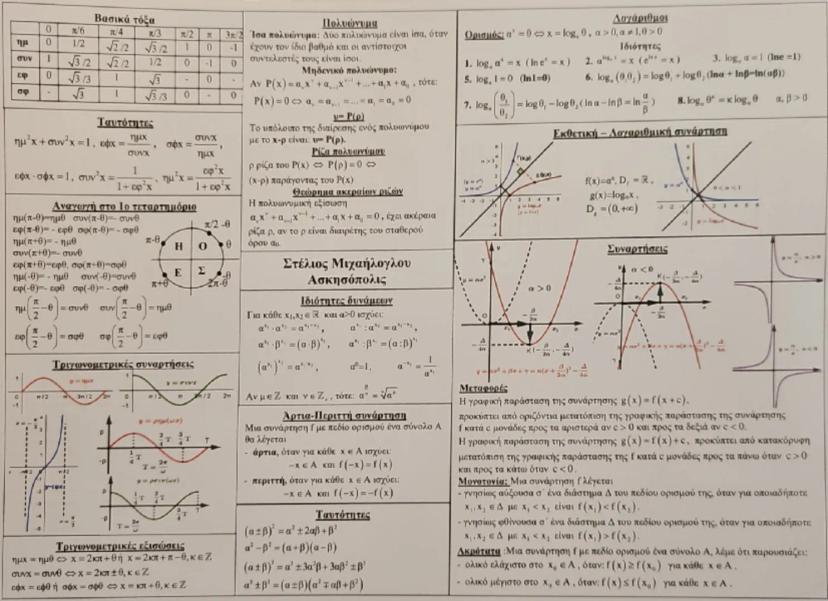 Βασικά τόξα
0 π/6 π/4 π/3 π/2 π 3π/2
ημ 0 1/2 √2/2 √3/2 1 0 -1
συν 1 √3/2 √2/2 1/2 0 -1 0
εφ 0 √3/3 1 √3 - 0 -
σφ - √3 1 √3/3 0 - 0
Ταυτότητες
ημ²x + συν²x = 1, εφx = ημx/συνx, σφx = συνx/ημx,
εφx·σφx = 1, συν²x = 1/(1+εφ²x), ημ²x = εφ²x/(1+εφ²x)
Αναγωγή στο 1ο τεταρτημόριο
ημ(π-θ)=ημθ συν(π-θ)=- συνθ
εφ(π-θ)=- εφθ σφ(π-θ)=- σφθ
ημ(π+θ)=- ημθ
συν(π+θ)=- συνθ
εφ(π+θ)=εφθ, σφ(π+θ)=σφθ
ημ(-θ)=- ημθ συν(-θ)=συνθ
εφ(-θ)=- εφθ σφ(-θ)=- σφθ
π/2 -θ
π-θ Η Ο θ
Ε Σ
π+θ 2π-θ
ημ(π/2 - θ) = συνθ συν(π/2 - θ) = ημθ
εφ(π/2 - θ) = σφθ σφ(π/2 - θ) = εφθ
Τριγωνομετρικές συναρτήσεις
y = ημx
y = συνx
y=εφx
Τριγωνομετρικές εξισώσεις
ημx = ημθ ⇔ x = 2κπ + θ ή x = 2κπ + π - θ, κ∈Z
συνx = συνθ ⇔ x = 2κπ ± θ, κ∈Z
εφx = εφθ ή σφx = σφθ ⇔ x = κπ + θ, κ∈Z
Πολυώνυμα
Ίσα πολυώνυμα: Δύο πολυώνυμα είναι ίσα, όταν
έχουν τον ίδιο βαθμό και οι αντίστοιχοι
συντελεστές τους είναι ίσοι.
Μηδενικό πολυώνυμο:
Αν P(x) = αᵥxᵛ + αᵥ₋₁xᵛ⁻¹ + ... + α₁x + α₀, τότε:
P(x) = 0 ⇔ αᵥ = αᵥ₋₁ = ... = α₁ = α₀ = 0
υ= P(ρ)
Το υπόλοιπο της διαίρεσης ενός πολυωνύμου
με το x-ρ είναι: υ= P(ρ).
Ρίζα πολυωνύμου
ρ ρίζα του P(x) ⇔ P(ρ) = 0 ⇔
(x-ρ) παράγοντας του P(x)
Θεώρημα ακεραίων ριζών
Η πολυωνυμική εξίσωση
αᵥxᵛ + αᵥ₋₁xᵛ⁻¹ + ... + α₁x + α₀ = 0, έχει ακέραια
ρίζα ρ, αν το ρ είναι διαιρέτης του σταθερού
όρου α₀.
Στέλιος Μιχαήλογλου
Ασκησόπολις
Ιδιότητες δυνάμεων
Για κάθε x₁,x₂∈ℝ και α>0 ισχύει:
α^x₁ · α^x₂ = α^(x₁+x₂), α^x₁ : α^x₂ = α^(x₁-x₂),
α^x₁ · β^x₁ = (α·β)^x₁, α^x₁ : β^x₁ = (α:β)^x₁
(α^x₁)^x₂ = α^(x₁·x₂), α⁰=1, α^(-x₁) = 1/α^x₁
Αρτια-Περιττή συνάρτηση
Μια συνάρτηση f με πεδίο ορισμού ένα σύνολο Α
θα λέγεται
- άρτια, όταν για κάθε x∈A ισχύει:
-x∈A και f(-x) = f(x)
- περιττή, όταν για κάθε x∈A ισχύει:
-x∈A και f(-x) = -f(x)
Ταυτότητες
(α±β)² = α² ± 2αβ + β²
α² - β² = (α+β)(α-β)
(α±β)³ = α³ ± 3α²β + 3αβ² ± β³
α³ ± β³ = (α±β)(α² ∓ αβ + β²)
Λογάριθμοι
Ορισμός: αˣ = θ ⇔ x = log_α θ, α>0, α≠1, θ>0
Ιδιότητες
1. log_α αˣ = x (ln eˣ = x) 2. α^(log_α x) = x (e^(ln x) = x) 3. log_α α = 1 (lne =1)
5. log_α 1 = 0 (ln1=0) 6. log_α(θ₁θ₂) = logθ₁ + logθ₂ (lnα + lnβ=ln(αβ))
7. log_α(θ₁/θ₂) = logθ₁ - logθ₂ (lnα - lnβ = ln α/β) 8. log_α θᵏ = κ log_α θ α, β > 0
Εκθετική – Λογαριθμική συνάρτηση
f(x)=αˣ, D_f = ℝ,
g(x)=log_α x,
D_g = (0,+∞)
Συναρτήσεις
α > 0
α < 0
Μεταφορές
Η γραφική παράσταση της συνάρτησης g(x) = f(x + c),
προκύπτει από οριζόντια μετατόπιση της γραφικής παράστασης της συνάρτησης
f κατά c μονάδες προς τα αριστερά αν c > 0 και προς τα δεξιά αν c < 0.
Η γραφική παράσταση της συνάρτησης g(x) = f(x) + c, προκύπτει από κατακόρυφη
μετατόπιση της γραφικής παράστασης της f κατά c μονάδες προς τα πάνω όταν c > 0
και προς τα κάτω όταν c < 0.
Μονοτονία: Μια συνάρτηση f λέγεται
- γνησίως αύξουσα σ΄ ένα διάστημα Δ του πεδίου ορισμού της, όταν για οποιαδήποτε
x₁,x₂∈Δ με x₁ < x₂ είναι f(x₁) < f(x₂).
- γνησίως φθίνουσα σ΄ ένα διάστημα Δ του πεδίου ορισμού της, όταν για οποιαδήποτε
x₁,x₂∈Δ με x₁ < x₂ είναι f(x₁) > f(x₂).
Ακρότατα :Μια συνάρτηση f με πεδίο ορισμού ένα σύνολο Α, λέμε ότι παρουσιάζει:
- ολικό ελάχιστο στο x₀∈A, όταν: f(x) ≥ f(x₀) για κάθε x∈A.
- ολικό μέγιστο στο x₀∈A, όταν: f(x) ≤ f(x₀) για κάθε x∈A.